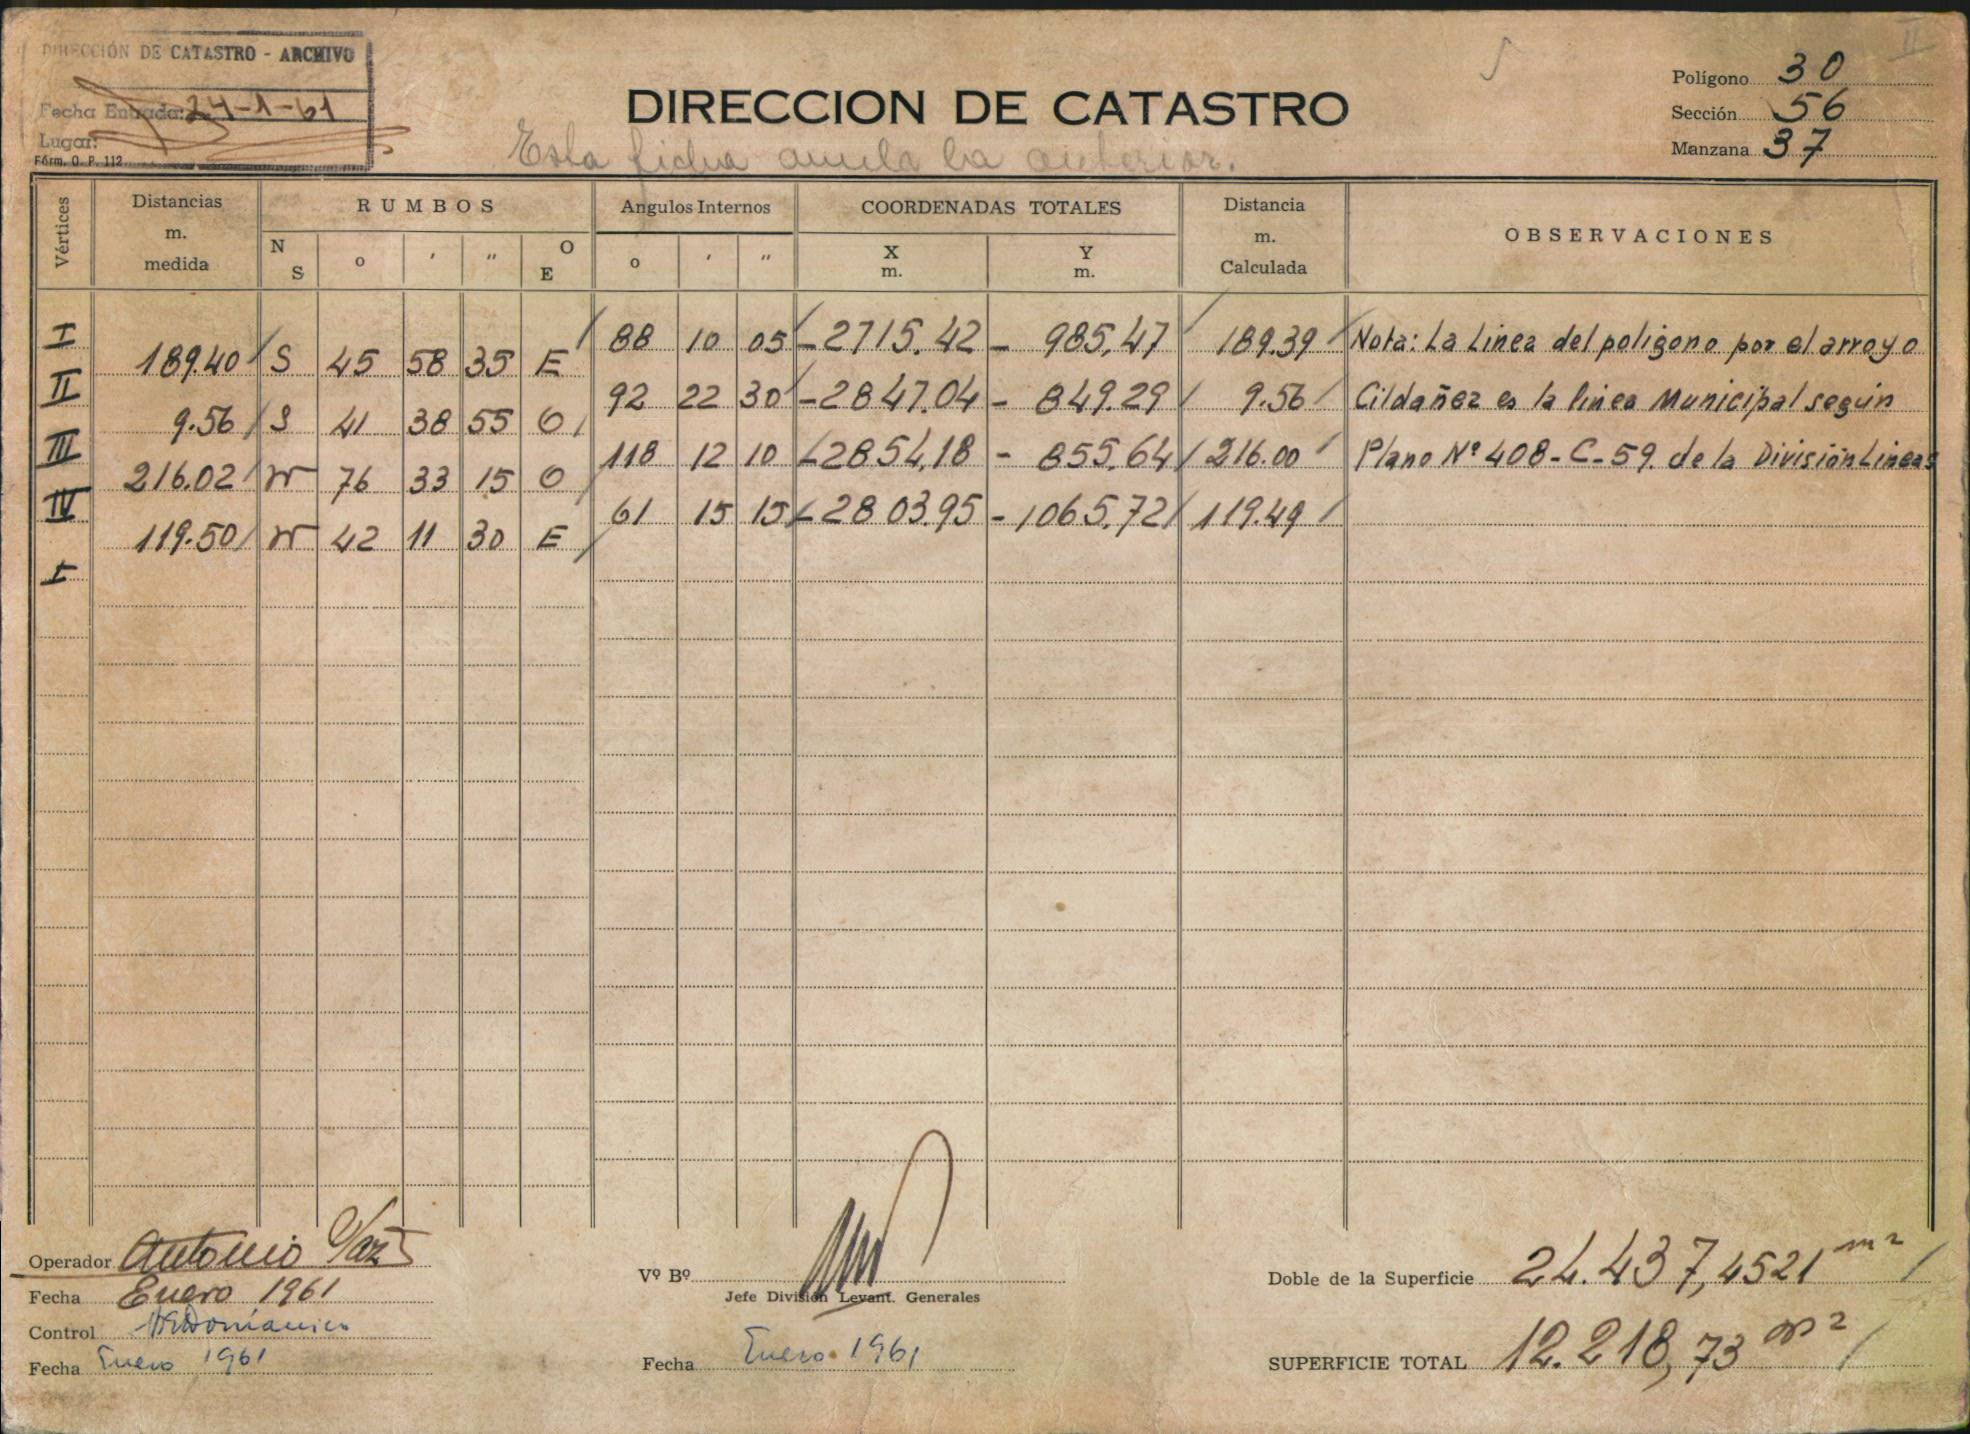 DIRECCIÓN DE CATASTRO - ARCHIVO
Fecha Entrada: 24-1-61
Lugar:
Fórm. O. P. 112
DIRECCION DE CATASTRO
Esta ficha anula la anterior.
II
Polígono 30
Sección 56
Manzana 37
Vértices
Distancias m. medida
RUMBOS
N S o ' " O E
Angulos Internos
o ' "
COORDENADAS TOTALES
X m. Y m.
Distancia m. Calculada
OBSERVACIONES
I 88 10 05 -2715.42 - 985.47 189.39 Nota: La Linea del poligono por el arroyo
189.40 S 45 58 35 E
II 92 22 30 -2847.04 - 849.29 9.56 Cildañez es la linea Municipal según
9.56 S 41 38 55 O
III 118 12 10 -2854.18 - 855.64 216.00 Plano Nº 408-C-59. de la División Lineas
216.02 N 76 33 15 O
IV 61 15 15 -2803.95 -1065.72 119.49
119.50 N 42 11 30 E
I
Operador Antonio
Fecha Enero 1961
Control
Fecha Enero 1961
Vº Bº
Jefe División Levant. Generales
Fecha Enero 1961
Doble de la Superficie 24.437,4521 m²
SUPERFICIE TOTAL 12.218,73 m²